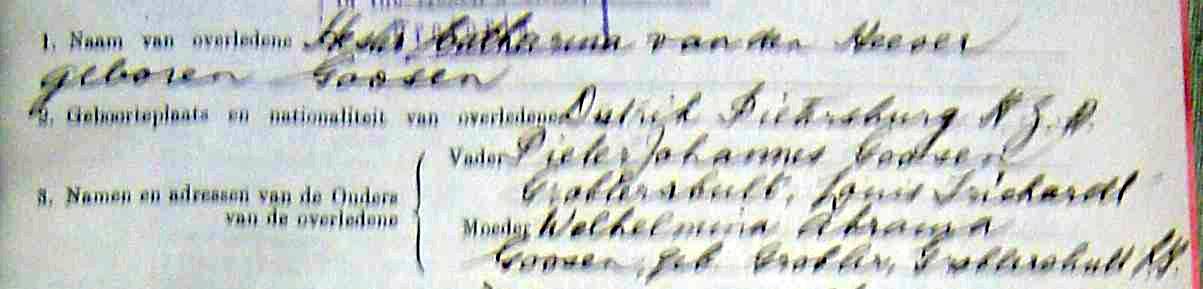 1. Naam van overledene Hester Catharina van den Heever
geboren Goosen
2. Geboorteplaats en nationaliteit van overledene Distrik Pietersburg N.Z.A.
Vader Pieter Johannes Goosen
3. Namen en adressen van de Ouders van de overledene
Groblersbult, Louis Trichardt
Moeder Welhelmina Abrama
Goosen, geb. Grobler, Groblersbult